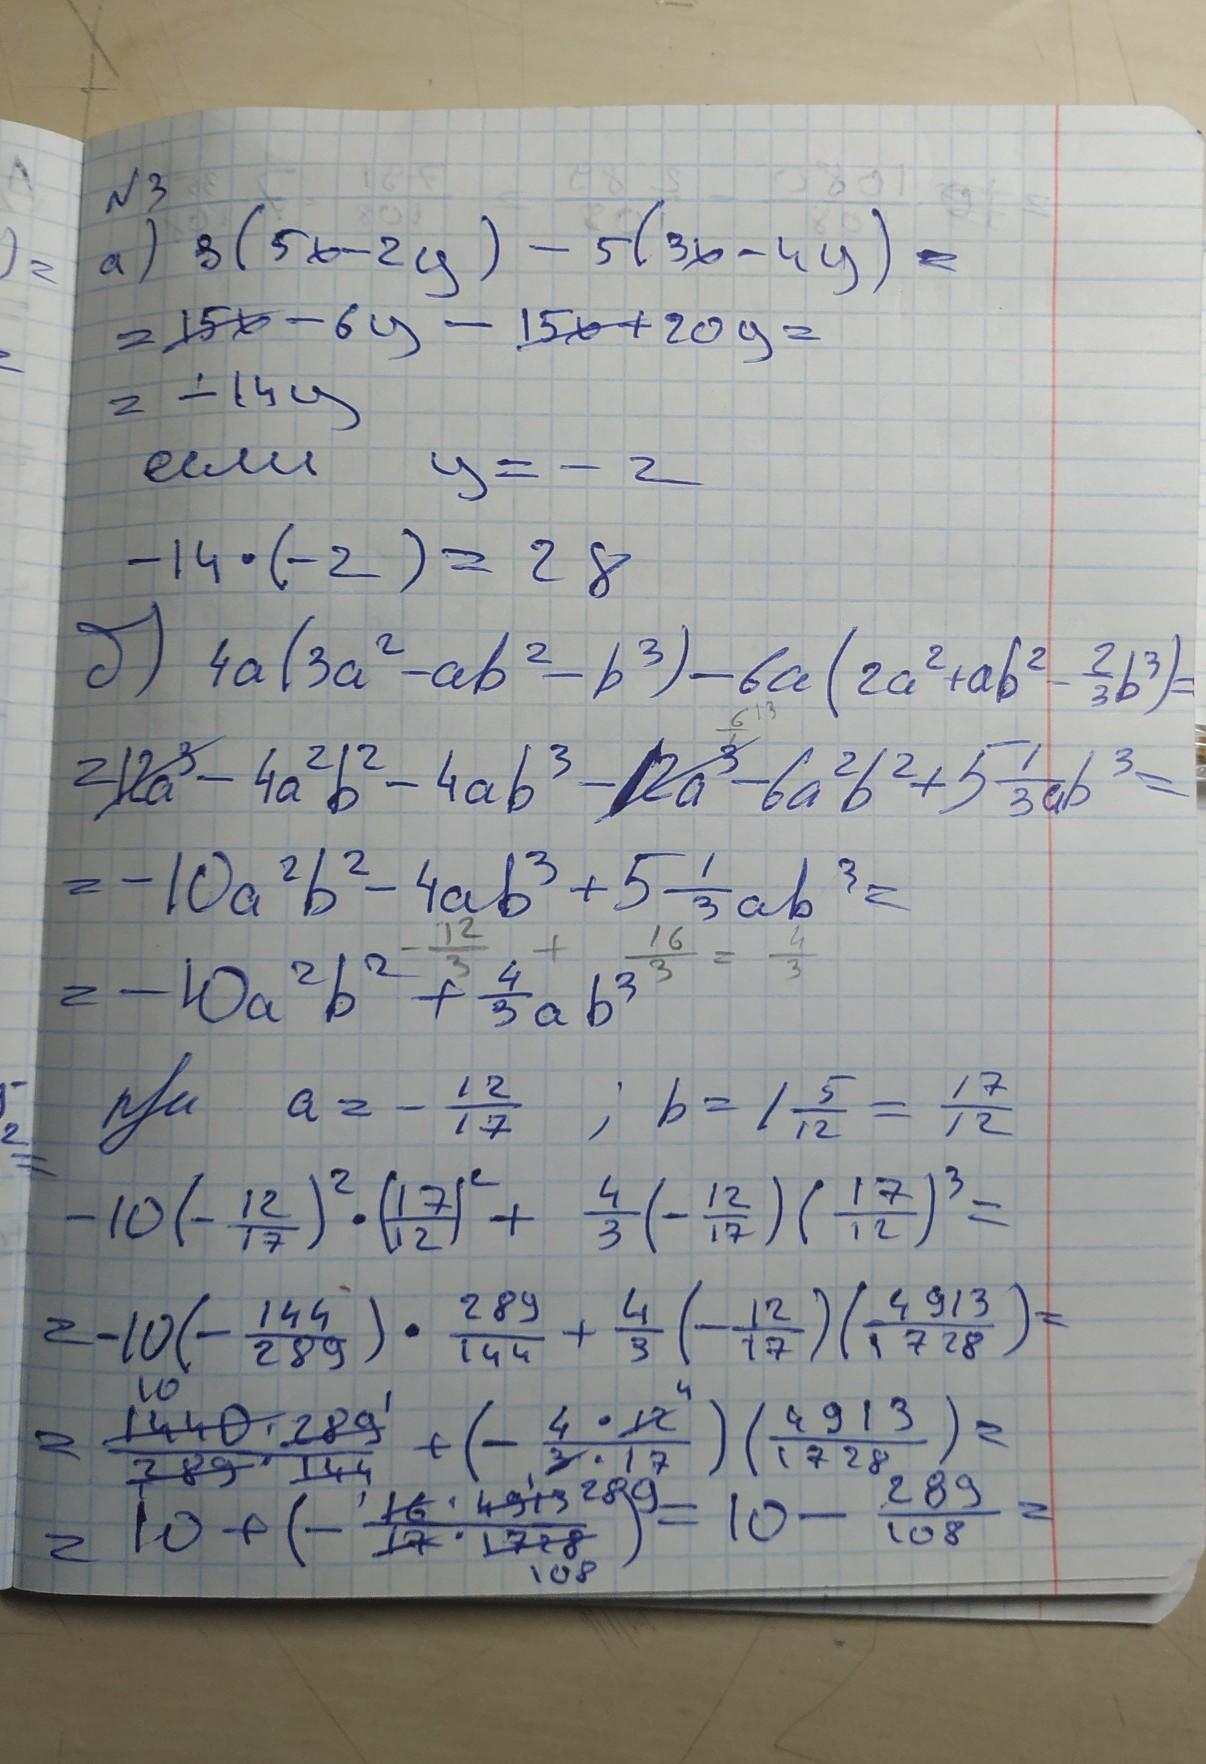 №3
а) 3(5x-2y) - 5(3x-4y) =
= 15x - 6y - 15x + 20y =
= -14y
если y = -2
-14·(-2) = 28
б) 4a(3a²-ab²-b³)-6a(2a²+ab²-2/3b³)=
=12a³-4a²b²-4ab³-12a³-6a²b²+5 1/3ab³=
=-10a²b²-4ab³+5 1/3ab³=
-12/3 + 16/3 = 4/3
=-10a²b²+4/3ab³
при a=-12/17 ; b=1 5/12=17/12
-10(-12/17)²·(17/12)²+ 4/3(-12/17)(17/12)³=
=-10(-144/289)·289/144+4/3(-12/17)(4913/1728)=
10 1 4
=1440·289/289·144+(-4·12/3·17)(4913/1728)=
1 1 289
=10+(-16·4913/17·1728)=10-289/108=
108